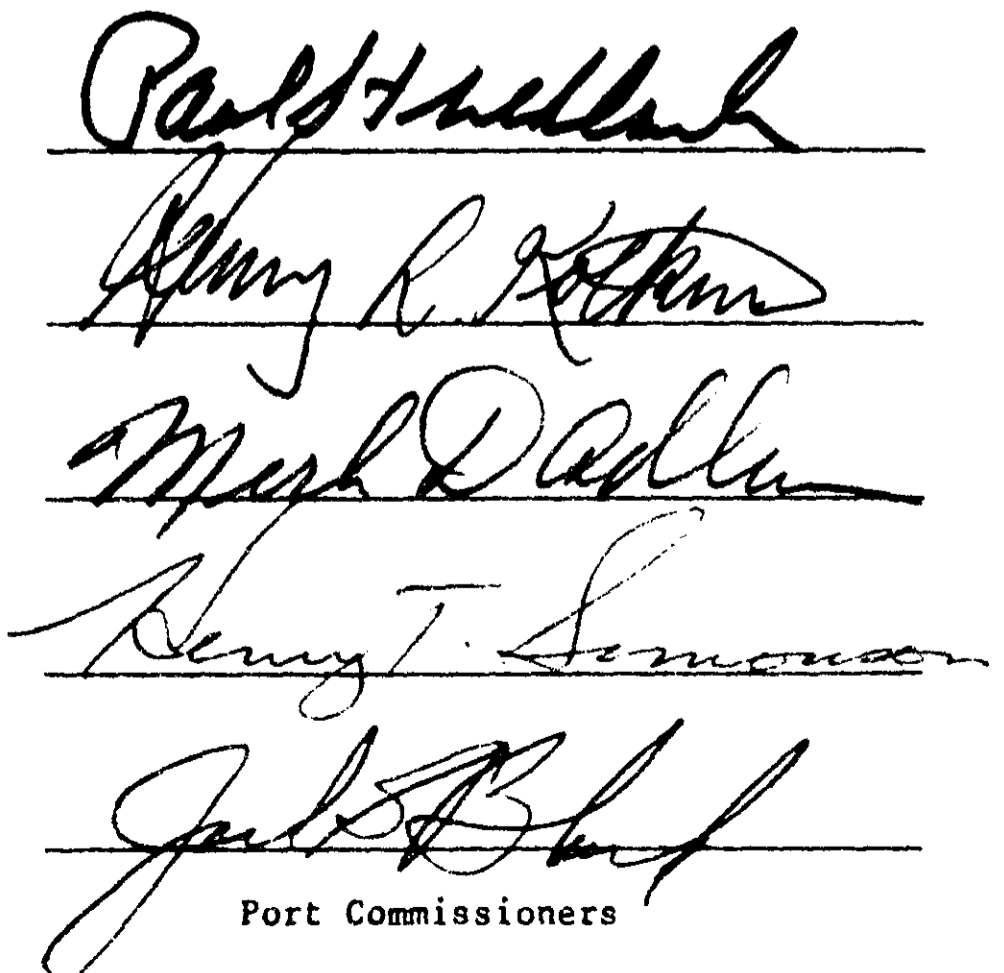 Paul S Friedlander
Henry R. Kotkins
Merle D Adlum
Henry T. Simonson
Jack S Block
Port Commissioners